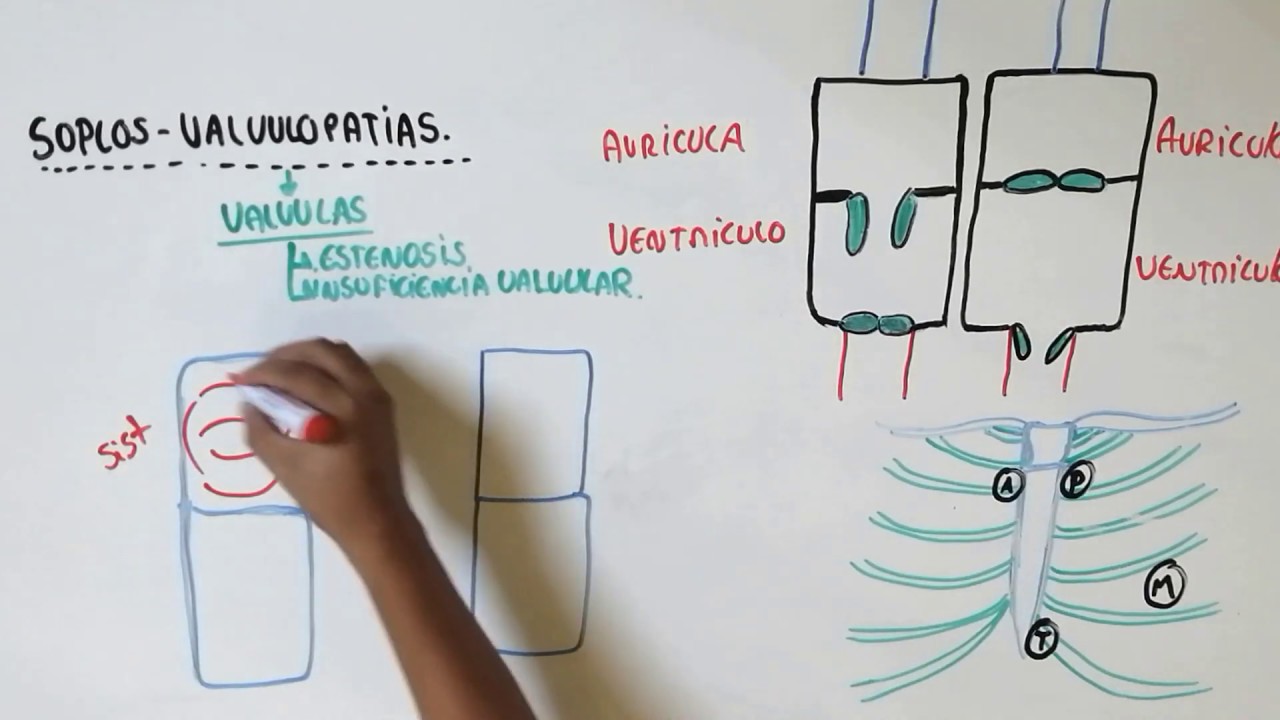 SOPLOS-VALVULOPATÍAS.
VALVULAS
ESTENOSIS.
INSUFICIENCIA VALVULAR.
sist
AURICULA
VENTRICULO
AURICUL
VENTRICUL
A
P
M
T